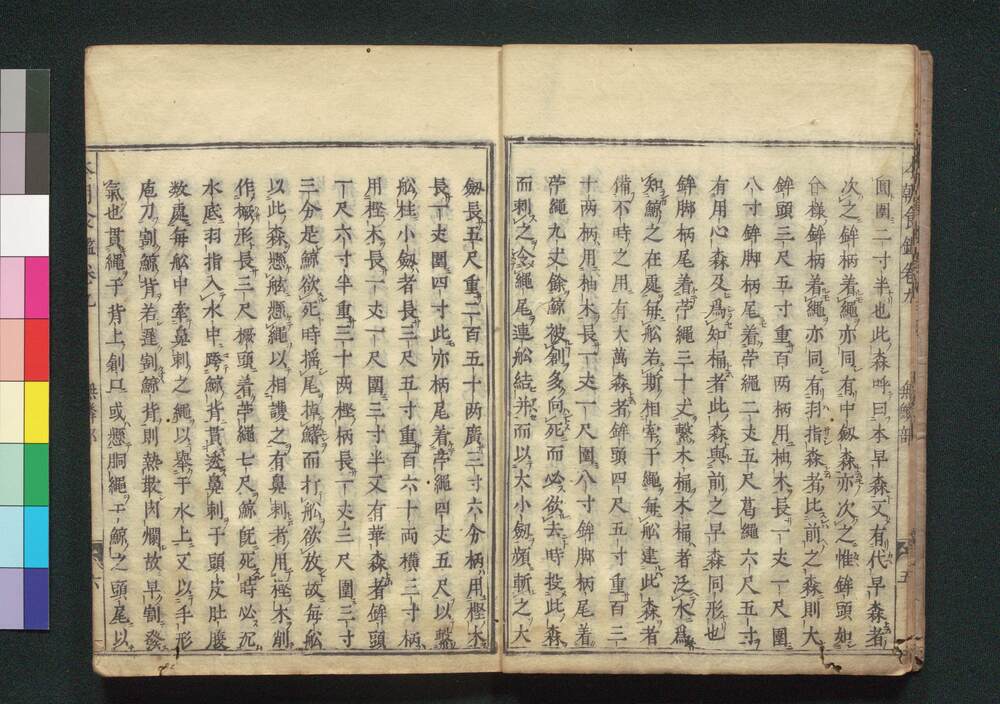 圓圍二寸半也此森呼曰本早森又有代早森者
次之鉾柄着繩亦同有中劔森亦次之惟鉾頭如
合樣鉾柄着繩亦同有羽指森者比前之森則大
鉾頭三尺五寸重百兩柄用柚木長一丈一尺圍
八寸鉾脚柄尾着苧繩二丈五尺葛繩六尺五寸
有用心森及爲知桶者此森與前之早森同形也
鉾脚柄尾着苧繩三十丈繋木桶木桶者泛水爲
知鯨之在處每舩若斯相索于繩每舩建此森者
備不時之用有大萬森者鉾頭四尺五寸重百二
十两柄用柚木長一丈一尺圍八寸鉾脚柄尾着
苧繩九丈餘鯨被創多向死而必欲去時投此森
而刺之合繩尾連舩結并而以大小劔頻斬之大
劔長五尺重二百五十两廣三寸六分柄用樫木
長一丈圍四寸此亦柄尾着苧繩四丈五尺以繋
舩柱小劔者長三尺五寸重百六十两横三寸柄
用樫木長一丈一尺圍三寸半又有華森者鉾頭
一尺六寸半重三十两樫柄長一丈三尺圍三寸
三分是鯨欲死時揺尾掉鰭而打舩欲放故每舩
以此森懸舷懸繩以相護之有鼻刺者用樫木削
作橛形長三尺橛頭着苧繩七尺鯨旣死時必沉
水底羽指入水中跨鯨背貫透鼻刺于頭皮肚邊
數處每舩中牽鼻刺之繩以舉于水上又以手形
庖刀割鯨背若遲割鯨背則熱散肉爛故早割發
氣也貫繩于背上創口或懸胴繩于鯨之頭尾以
本朝食鑑卷九
無鱗部
五
六